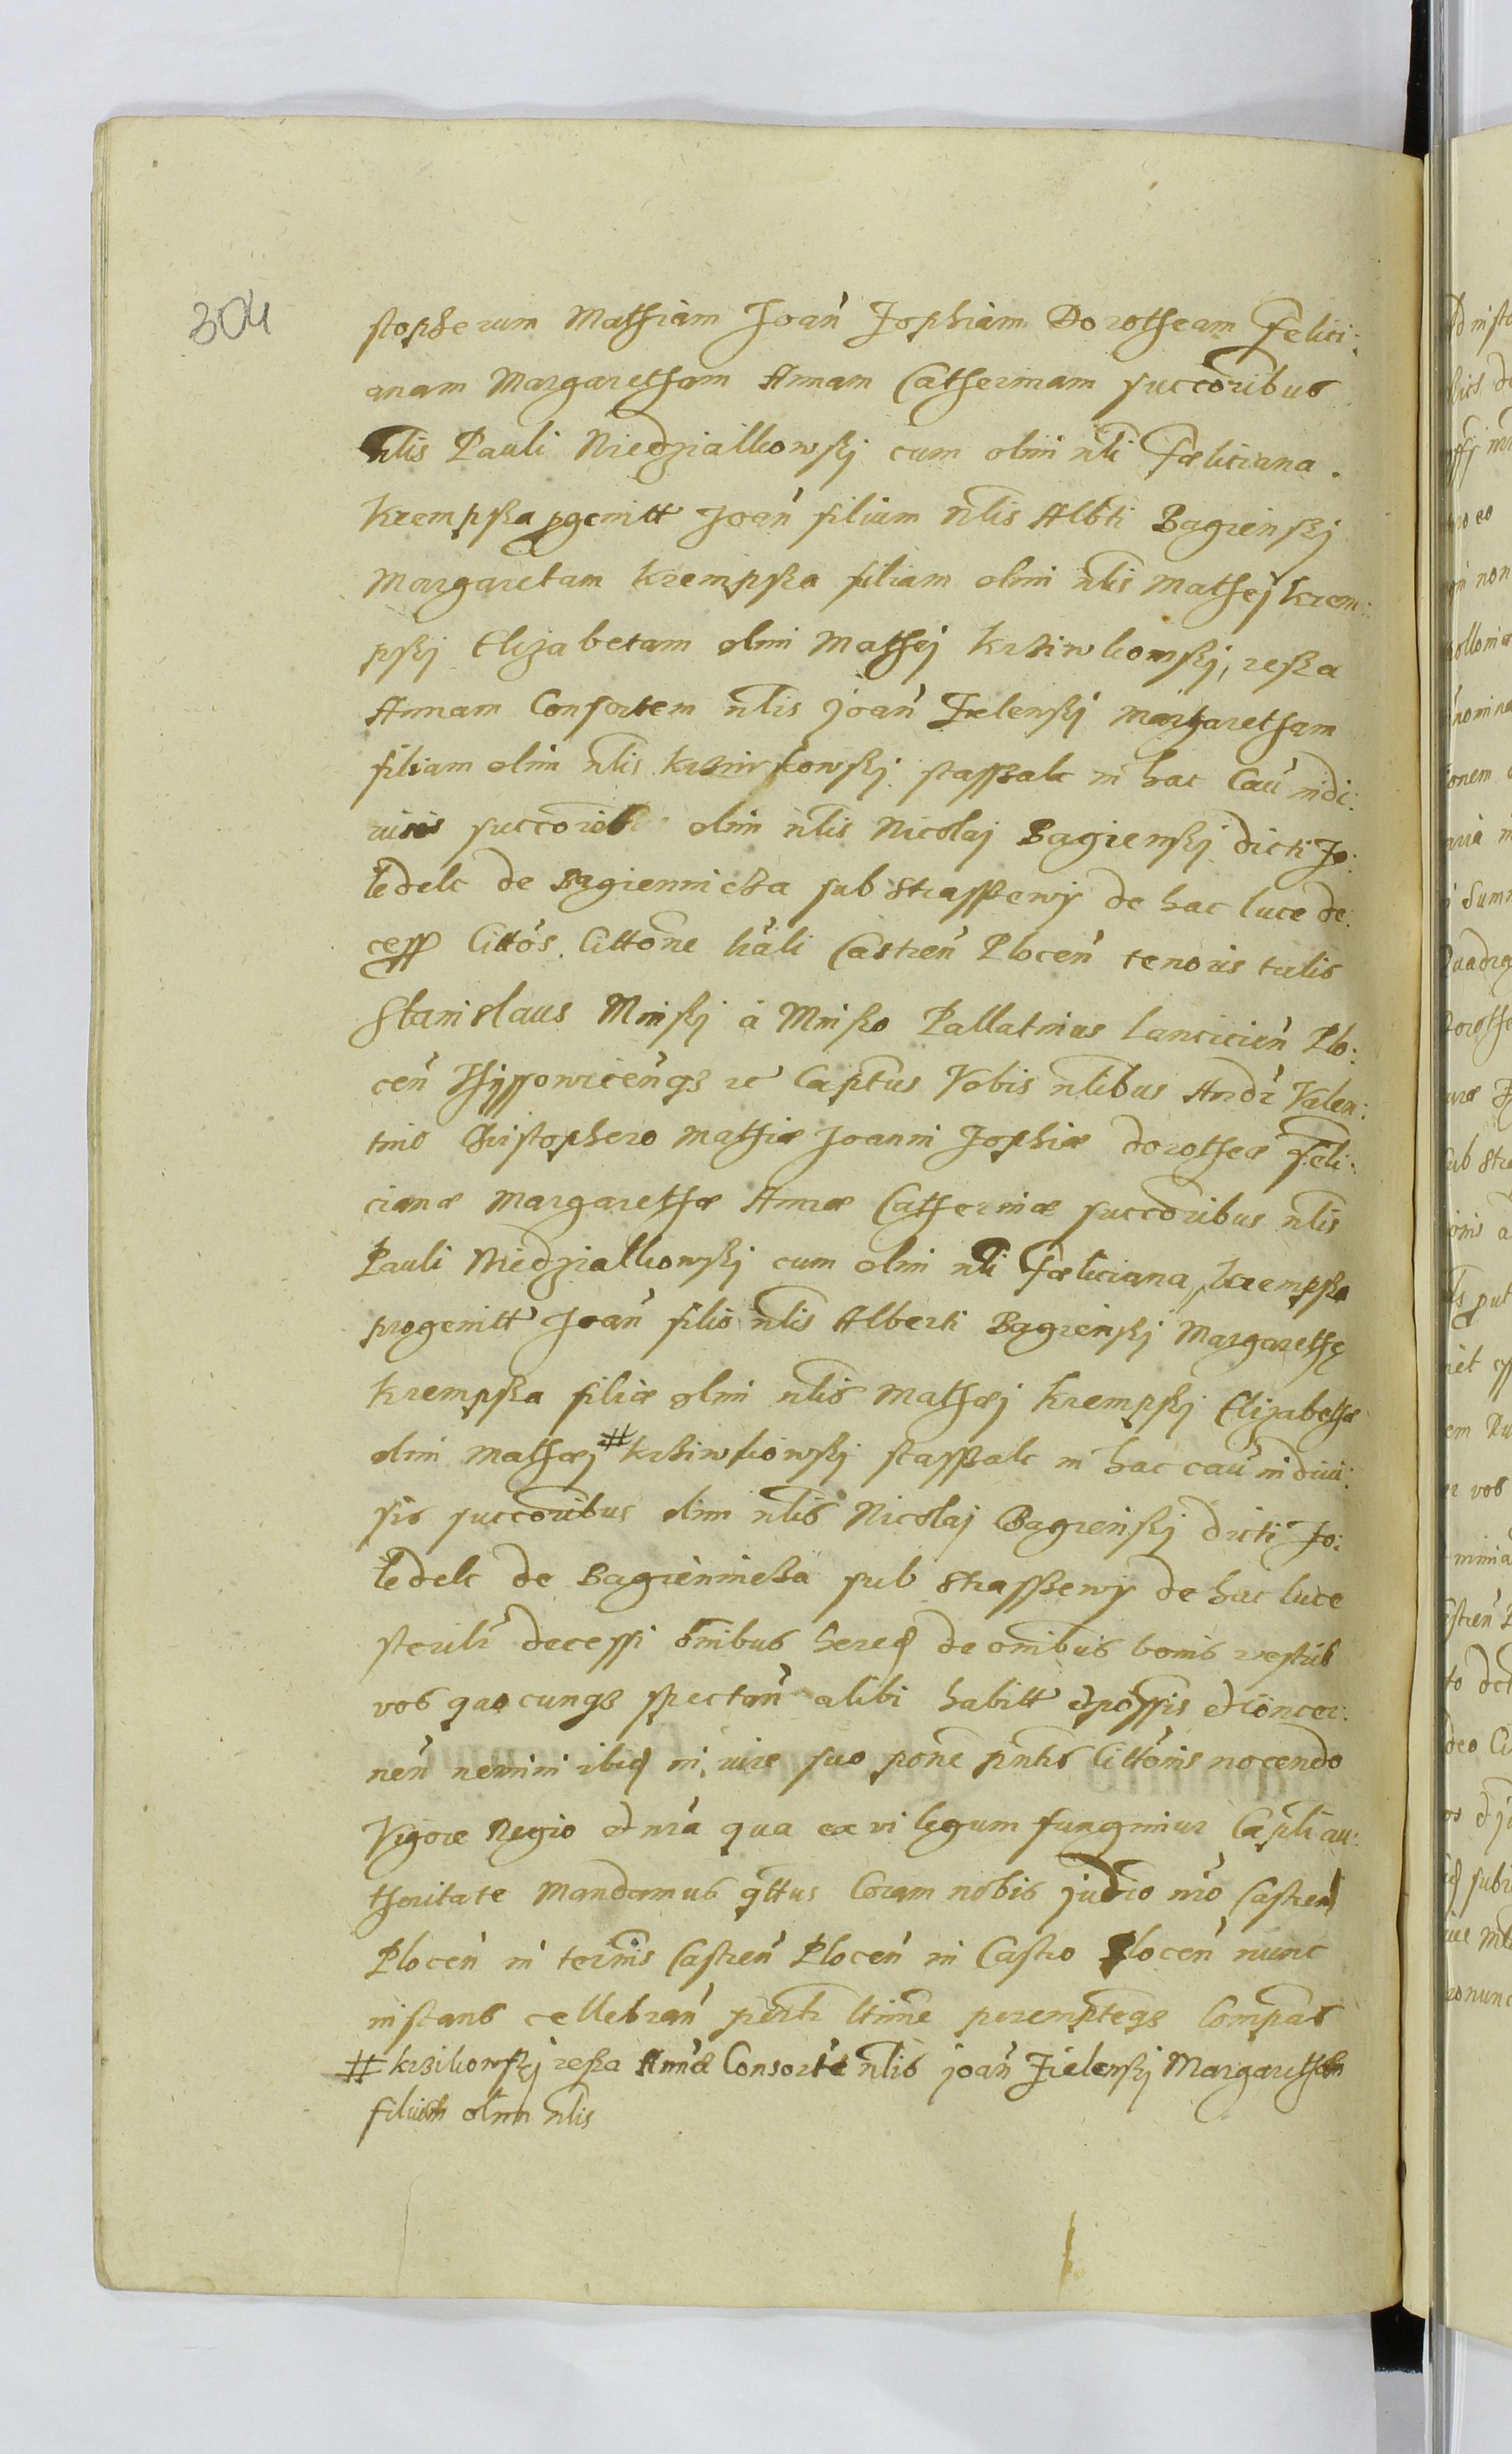 304
stopherum Mathiam Joan̄ Zophiam Dorotheam Felici:
anam Margaretham Annam Catherinam succoribus
nlis Pauli Niedzialkowskj cum olim nli Fæliciana
Krempska pgenitt Joan̄ filium Nlis Albti Bagienskj
Margaretam Krempska filiam olim nlis Mathej Krem:
pskj Elizabetam olim Mathej Krziwkowskj, reska
Annam Consortem nlis Joan̄ Zielenskj Margaretham
filiam olim nlis Krziwkowskj stassalc in hac Cau̅ indi:
uisis succorib olim nlis Nicolaj Bagienskj dicti Jo:
ledelc de Bagiennicza sub Strassewy de hac luce de:
cess Cittos. Cittone lrali Castren̄ Plocen̄ tenoris talis
Stanislaus Minskj a Minsko Pallatinus Lancicien̄ Plo:
cen̄ Capitus Vobis nlibus Andr Valen:
tino Christophero Mathiæ Joanni Zophiæ dorotheæ Feli:
cianæ Margarethæ Annæ Catherinæ succoribus nlis
Pauli Niedzialkowskj cum olim nli Fæliciana Krempska
progenitt Joan̄ filio nlis Alberti Bagienskj Margarethę
Krempska filiæ olim nlis Mathæj Krempskj Elizabethæ
olim Mathæj # Krziwkowskj stassalc in hac cau̅ indiui:
sis succoribus olim nlis Nicolaj Bagienskj dicti Jo:
ledelc de Bagiennicza sub Strassewy de hac luce
sterilr decessi omibus hered de omibus bonis vestris
vos quocunqз spectan̄ alibi habitt et possis et concer:
nen̄ nemini ibid in iure suo pone pntis Cittonis nocendo
Vigore Regio et nra qua ex vi legum fungimur Capli au:
thoritate Mandamus qttus Coram nobis judio nro Castren
Plocen̄ in termis Castren̄ Plocen̄ in Castro Plocen̄ nunc
instans cellebran̄ psnlr ltime perempteqз Compas
# Krzikowskj reska Annæ Consorte nlis joan̄ Zielenskj Margarethæ
filiæ olim nlis